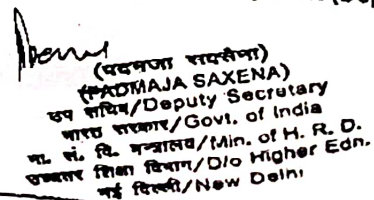 (पदमजा सक्सैना)
(PADMAJA SAXENA)
उप सचिव/Deputy Secretary
भारत सरकार/Govt. of India
मा. सं. वि. मन्त्रालय/Min. of H. R. D.
उच्चतर शिक्षा विभाग/D/o Higher Edn.
नई दिल्ली/New Delhi